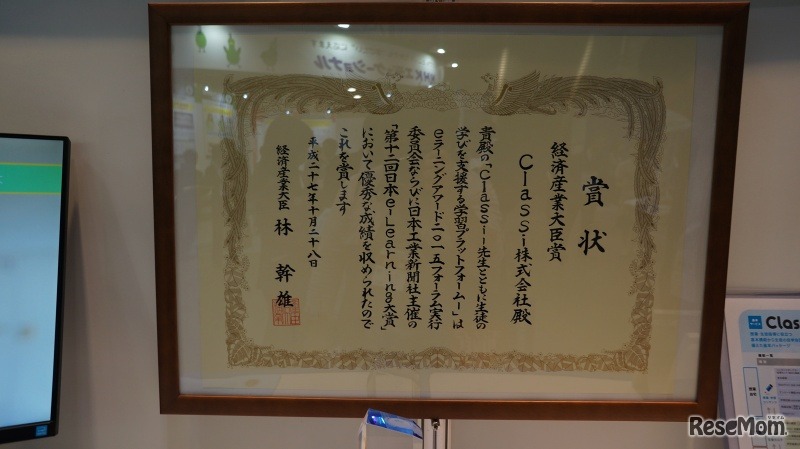 賞状
経済産業大臣賞
Classi株式会社殿
貴殿の「Classi-先生とともに生徒の
学びを支援する学習プラットフォーム-」は
eラーニングアワード二〇一五フォーラム実行
委員会ならびに日本工業新聞社主催の
「第十二回日本e-Learning大賞」
において優秀な成績を収められたので
これを賞します
平成二十七年十月二十八日
経済産業大臣 林 幹雄
Clas
ReseMom.